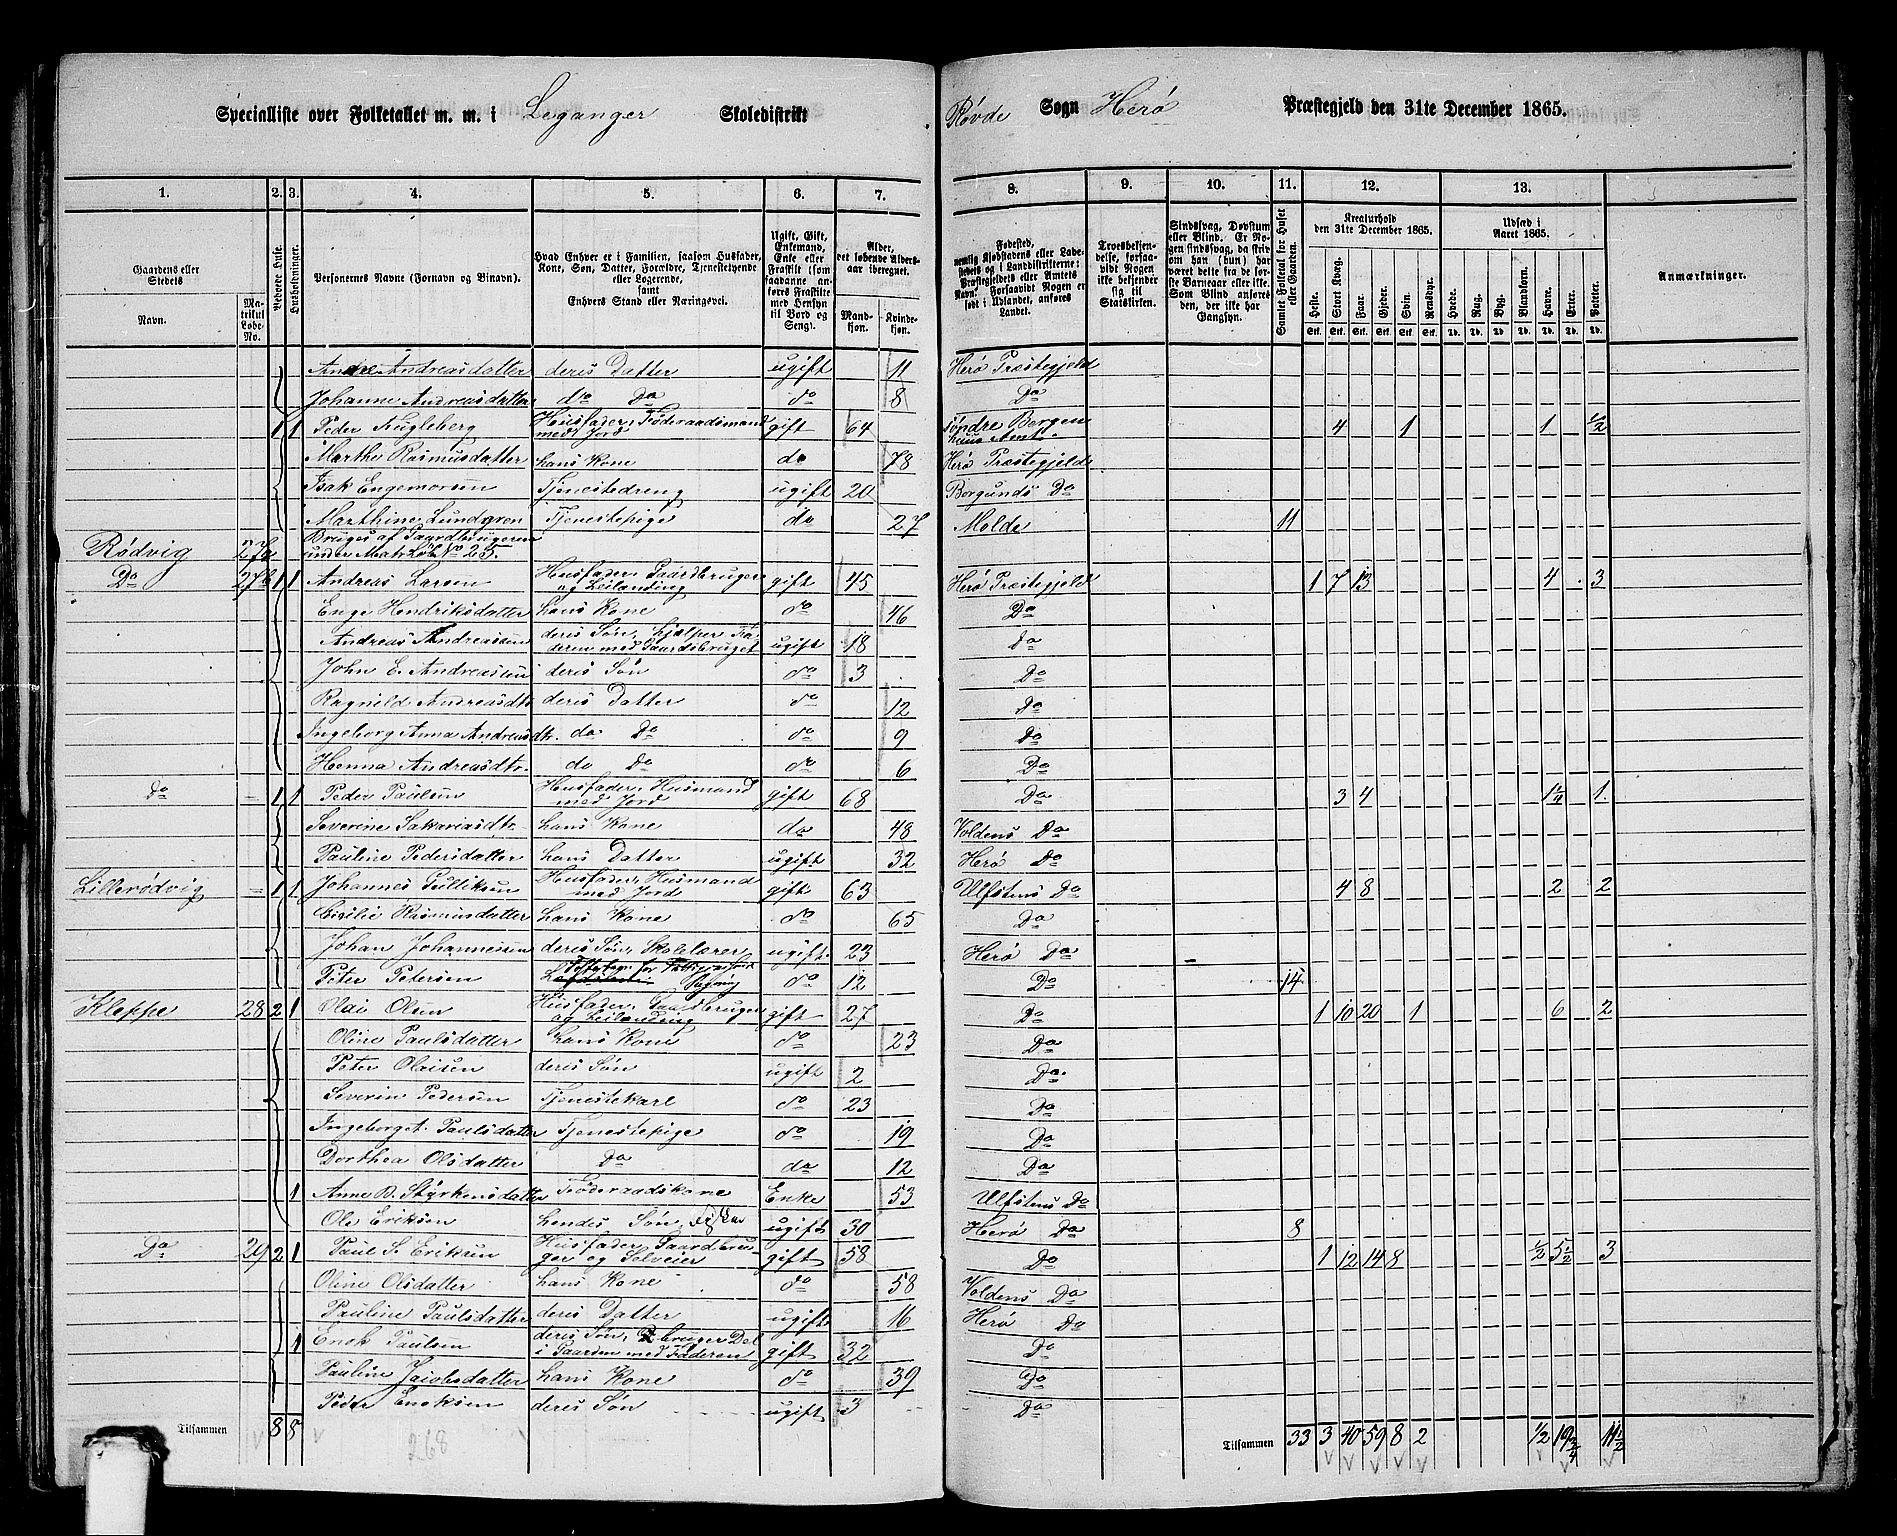 Specialliste over Folketallet m. m. i Leganger Skoledistrikt
Røvde Sogn Herø Præstegjeld den 31te December 1865.
1. 2. 3. 4. 5. 6. 7.
8. 9. 10. 11. 12. 13.
Gaardens eller Stedets
Navn.
Matrikul Løbe-No.
Beboede Huse.
Husholdninger.
Personernes Navne (Fornavn og Binavn).
Hvad Enhver er i Familien, saasom Husfader, Kone, Søn, Datter, Forældre, Tjenestetyende eller Logerende, samt Enhvers Stand eller Næringsvei.
Ugift, Gift, Enkemand, Enke eller Fraskilt (som saadanne anføres Fraskilte med Hensyn til Bord og Seng).
Alder, det løbende Alders-aar iberegnet.
Mandkjøn. Kvindekjøn.
Fødested, nemlig Kjøbstadens eller Ladestedets og i Landdistrikterne: Præstegjeldets eller Amtets Navn. Forsaavidt Nogen er født i Udlandet, anføres Landet.
Troesbekjendelse, forsaavidt Nogen ikke bekjender sig til Statskirken.
Sindssvag, Døvstum eller Blind. Er Nogen sindssvag, da skriv om han (hun) har været dette fra de første Barneaar eller ikke. Som Blind anføres den, der ikke har Gangsyn.
Samlet Folketal for Huset eller Gaarden.
Kreaturhold den 31te December 1865.
Heste. Stort Kvæg. Faar. Gjeder. Svin. Rensdyr.
Udsæd i Aaret 1865.
Hvede. Rug. Byg. Blandkorn. Havre. Erter. Poteter.
Anmærkninger.
Andreasdatter deres Datter ugift 11 Herø Præstegjeld
Johanne Andreasdatter do Do do 8 Do
1 1 Peder Fugleberg Husfader, Føderaadsmand med Jord gift 64 Søndre Bergenhuus Amt 4 1 1 1/2
Marthe Rasmusdatter hans Kone do 78 Herø Præstegjeld
Isak Engemorsen Tjenestedreng ugift 20 Borgunds Do
Marthine Lundgren Tjenestepige do 27 Molde 11
Rødvig 27a Bruges af Gaardbrugeren under Mat. Løb. No 25.
Do 27b 1 1 Andreas Larsen Husfader, Gaardbruger og Leilænding gift 45 Herø Præstegjeld 1 7 13 4 3
Enge Hendriksdatter hans Kone do 46 Do
Andreas Andreassen deres Søn, hjælper Faderen med Gaardsbruget ugift 18 do
John E. Andreassen deres Søn do 3 Do
Ragnild Andreasdtr deres Datter do 12 Do
Ingeborg Anna Andreasdtr. do Do do 9 Do
Hanna Andreasdtr. do Do do 6 Do
Do - 1 1 Peder Paulsen Husfader, Husmand med Jord gift 68 Do 3 4 1 1/4 1
Severine Sakariasdtr. hans Kone do 48 Voldens Do
Pauline Pedersdatter hans Datter ugift 32 Herø Do
Lillerødvig - 1 1 Johannes Gulliksen Husfader, Husmand med Jord gift 63 Ulfstens Do 4 8 2 2
Cicilie Rasmusdatter hans Kone do 65 Do
Johan Johannessen deres Søn, Skolelærer ugift 23 Herø Do
Peter Petersen do 12 Do 14
Kleppe 28 2 1 Olai Olsen Husfader, Gaardbruger og Leilænding gift 27 Do 1 10 20 1 6 2
Oline Paulsdatter hans Kone do 23 Do
Peter Olaisen deres Søn ugift 2 Do
Severin Pedersen Tjenestekarl do 23 Do
Ingeborget. Paulsdatter Tjenestepige do 19 Do
Dorthea Olsdatter Do do 12 Do
1 Anne B. Styrkensdatter Føderaadskone Enke 53 Ulfstens Do
Ole Eriksen hendes Søn, ugift 30 Herø Do 8
Do 29 2 1 Paul S. Eriksen Husfader, Gaardbruger og Selveier gift 58 Do 1 12 14 8 1/2 5 1/2 3
Oline Olsdatter hans Kone do 58 Voldens Do
Pauline Paulsdatter deres Datter ugift 16 Herø Do
1 Enok Paulsen deres Søn, bruger Del i Gaarden med Faderen gift 32 Do
Pauline Jacobsdatter hans Kone do 39 Do
Peder Enoksen deres Søn ugift 3 Do
Tilsammen 8 8
268
Tilsammen 33 3 40 59 8 2 1/2 19 3/4 11 1/2